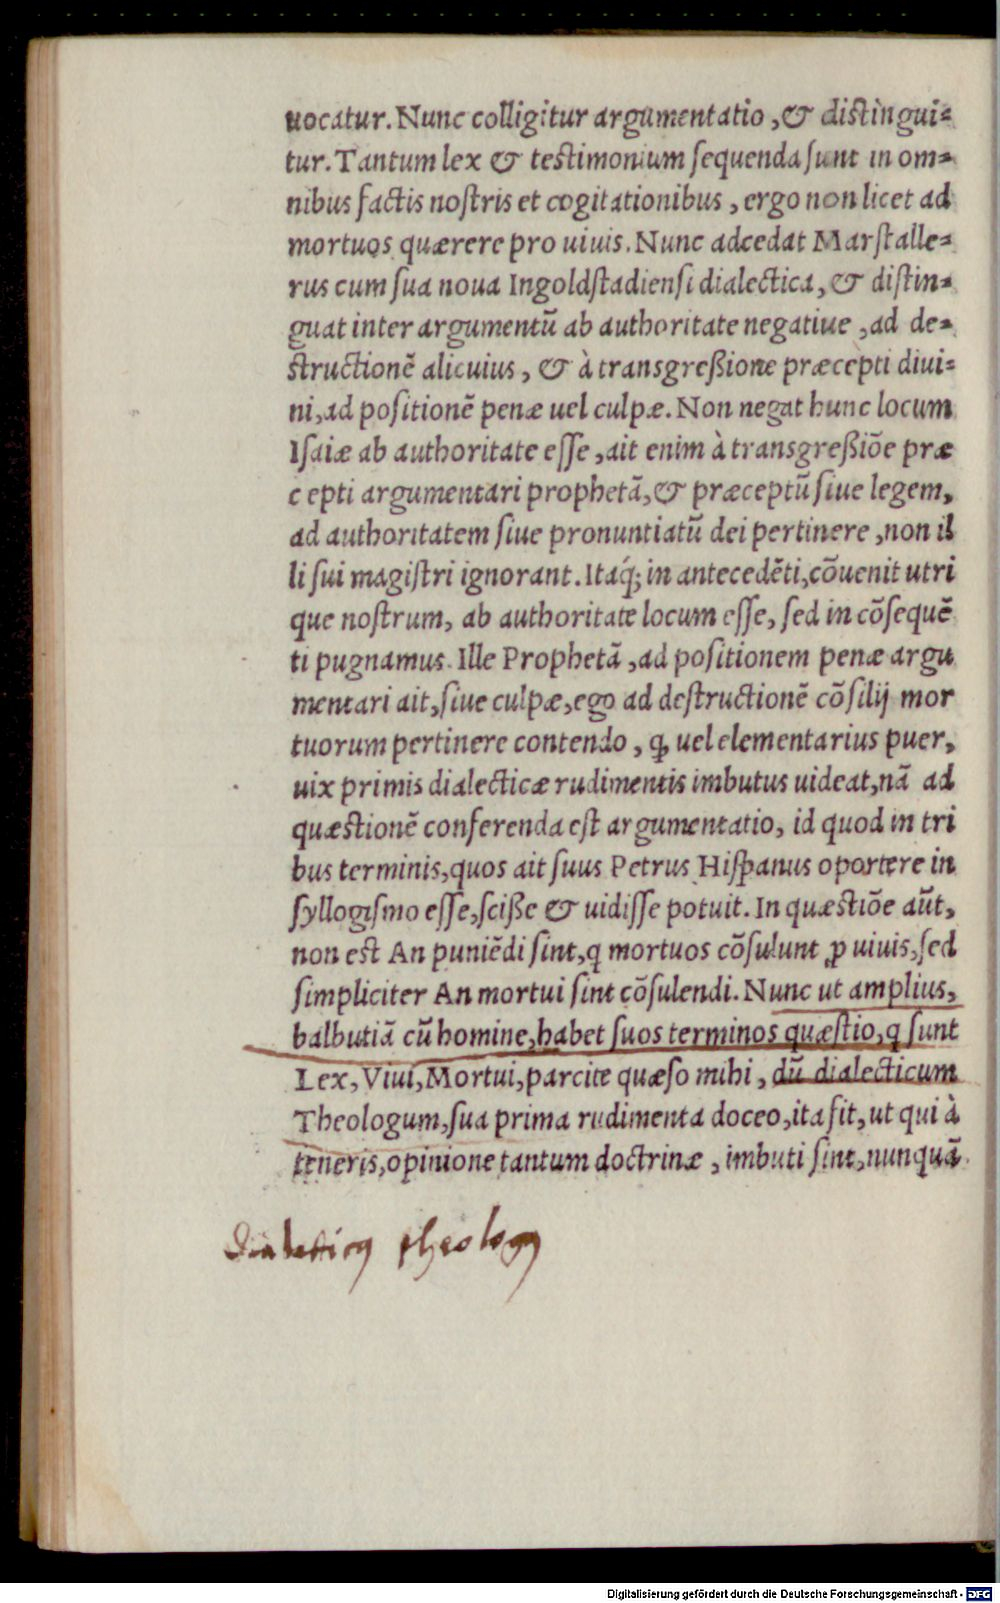 uocatur. Nunc colligitur argumentatio, & distingui-
tur. Tantum lex & testimonium sequenda sunt in om-
nibus factis nostris et cogitationibus, ergo non licet ad
mortuos quærere pro uiuis. Nunc adcedat Marstalle-
rus cum sua noua Ingoldstadiensi dialectica, & distin-
guat inter argumentū ab authoritate negatiue, ad de-
structionē alicuius, & à transgreßione præcepti diui-
ni, ad positionē penæ uel culpæ. Non negat hunc locum
Isaiæ ab authoritate esse, ait enim à transgreßiōe præ
cepti argumentari prophetā, & præceptū siue legem,
ad authoritatem siue pronuntiatū dei pertinere, non il
li sui magistri ignorant. Itaq́; in antecedēti, cōuenit utri
que nostrum, ab authoritate locum esse, sed in cōsequē
ti pugnamus. Ille Prophetā, ad positionem penæ argu
mentari ait, siue culpæ, ego ad destructionē cōsilij mor
tuorum pertinere contendo, ꝙ uel elementarius puer,
uix primis dialecticæ rudimentis imbutus uideat, nā ad
quæstionē conferenda est argumentatio, id quod in tri
bus terminis, quos ait suus Petrus Hispanus oportere in
syllogismo esse, sciße & uidisse potuit. In quæstiōe aūt,
non est An puniēdi sint, q mortuos cōsulunt ꝓ uiuis, sed
simpliciter An mortui sint cōsulendi. Nunc ut amplius,
balbutiā cū homine, habet suos terminos quæstio, q sunt
Lex, Viui, Mortui, parcite quæso mihi, dū dialecticum
Theologum, sua prima rudimenta doceo, ita fit, ut qui à
teneris, opinione tantum doctrinæ, imbuti sint, nunquā
Dialecticꝰ theologꝰ
Digitalisierung gefördert durch die Deutsche Forschungsgemeinschaft - DFG